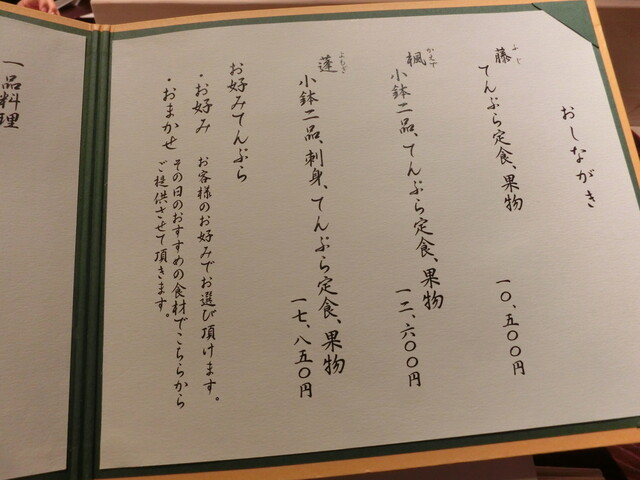 おしながき
藤 ふじ
てんぷら定食、果物 一〇、五〇〇円
楓 かえで
小鉢二品、てんぷら定食、果物 一二、六〇〇円
蓬 よもぎ
小鉢二品、刺身、てんぷら定食、果物 一七、八五〇円
お好みてんぷら
・お好み お客様のお好みでお選び頂けます。
・おまかせ その日のおすすめの食材でこちらから
ご提供させて頂きます。
一品料理